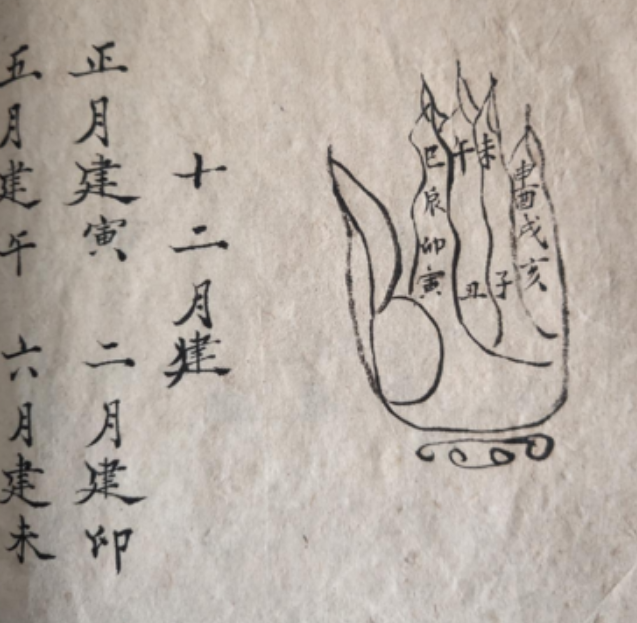 巳午未
辰
卯
寅丑子
申
酉
戌
亥
十二月建
正月建寅 二月建卯
五月建午 六月建未